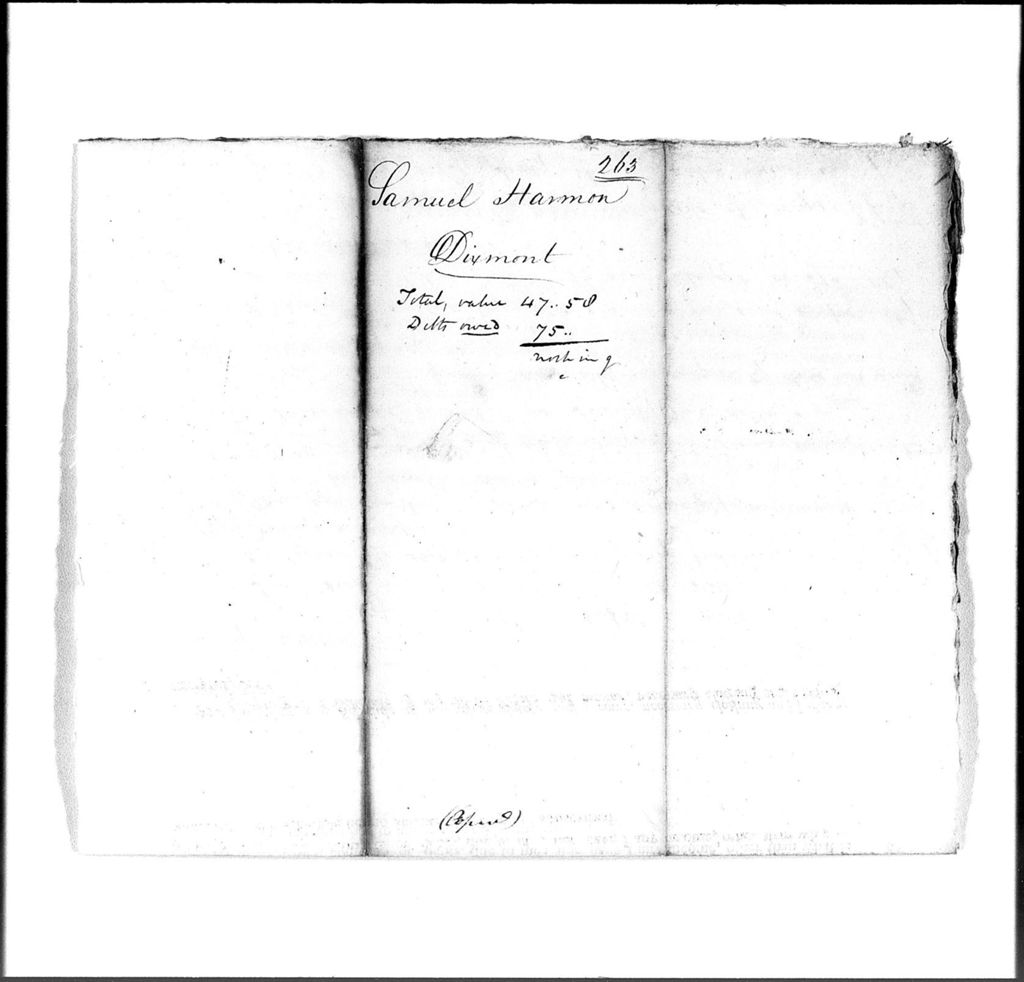 263
Samuel Harmon
Dixmont
Total, value 47..58
Debts owed 75..
nothing
(Copied)